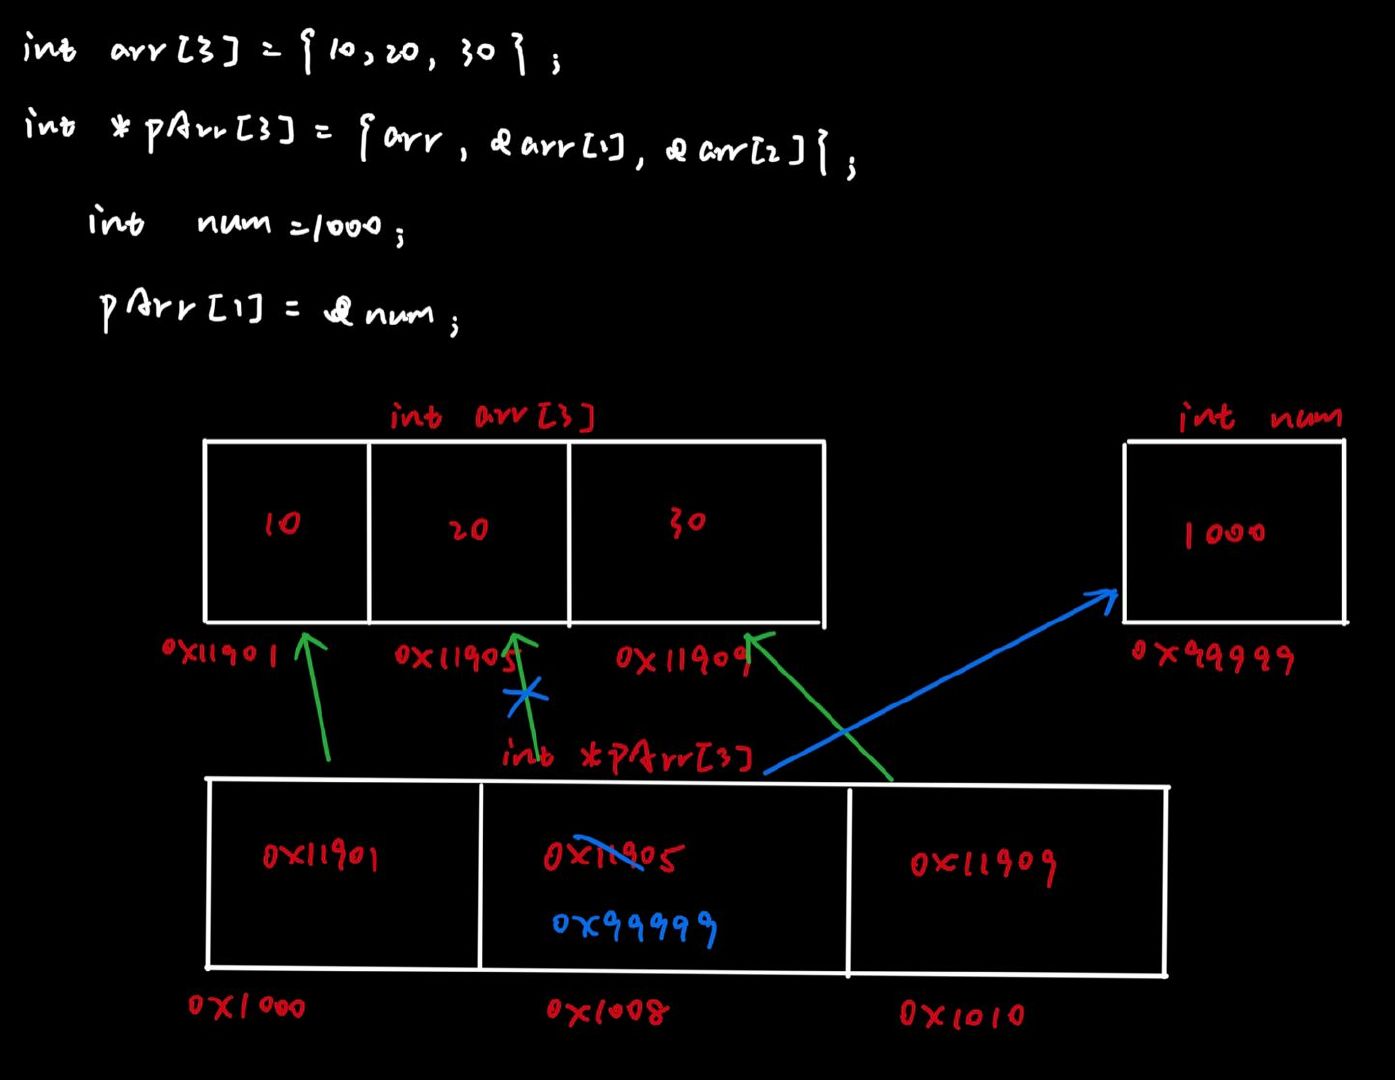 int arr[3] = {10, 20, 30};
int *pArr[3] = {arr, &arr[1], &arr[2]};
int num = 1000;
pArr[1] = &num;
int arr[3]
int num
10 20 30
1000
0x11901 0x11905 0x11909
0x99999
int *pArr[3]
0x11901 0x11905 0x11909
0x99999
0x1000 0x1008 0x1010